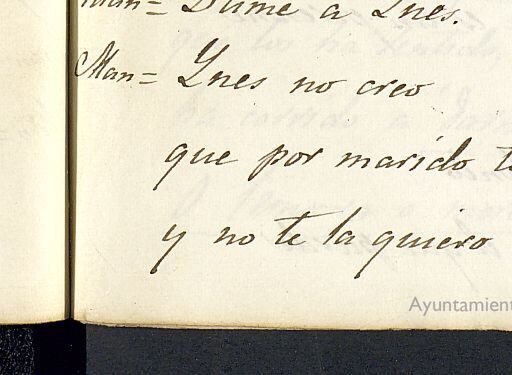 Man= Dime a Ynes.
Man= Ynes no creo
que por marido t
y no te la quiero
Ayuntamient